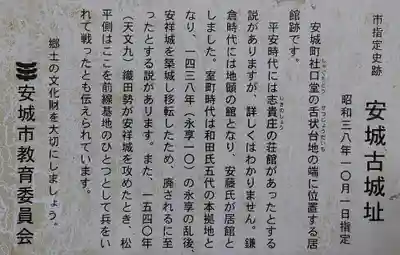 市指定史跡
安城古城址
昭和三八年一〇月一日指定
安城町社口堂の舌状台地の端に位置する居
館跡です。
平安時代には志貴庄の荘館があったとする
説がありますが、詳しくはわかりません。鎌
倉時代には地頭の館となり、安藤氏が居館と
しました。室町時代は和田氏五代の本拠地と
なり、一四三八年(永享一〇)の永享の乱後、
安祥城を築城し移転したため、廃されるに至
ったとする説があります。また、一五四〇年
(天文九)織田勢が安祥城を攻めたとき、松
平側はここを前線基地のひとつとして兵をい
れて戦ったとも伝えられています。
郷土の文化財を大切にしましょう。
安城市教育委員会